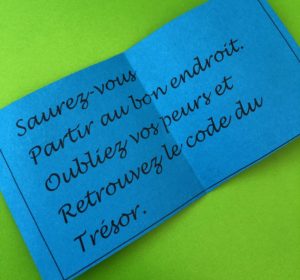 Saurez-vous
Partir au bon endroit.
Oubliez vos peurs et
Retrouvez le code du
Trésor.